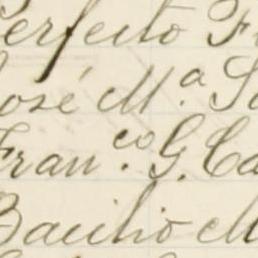 Perfecto F
José M.ª S
Fran.co G. Ca
Bacilio M